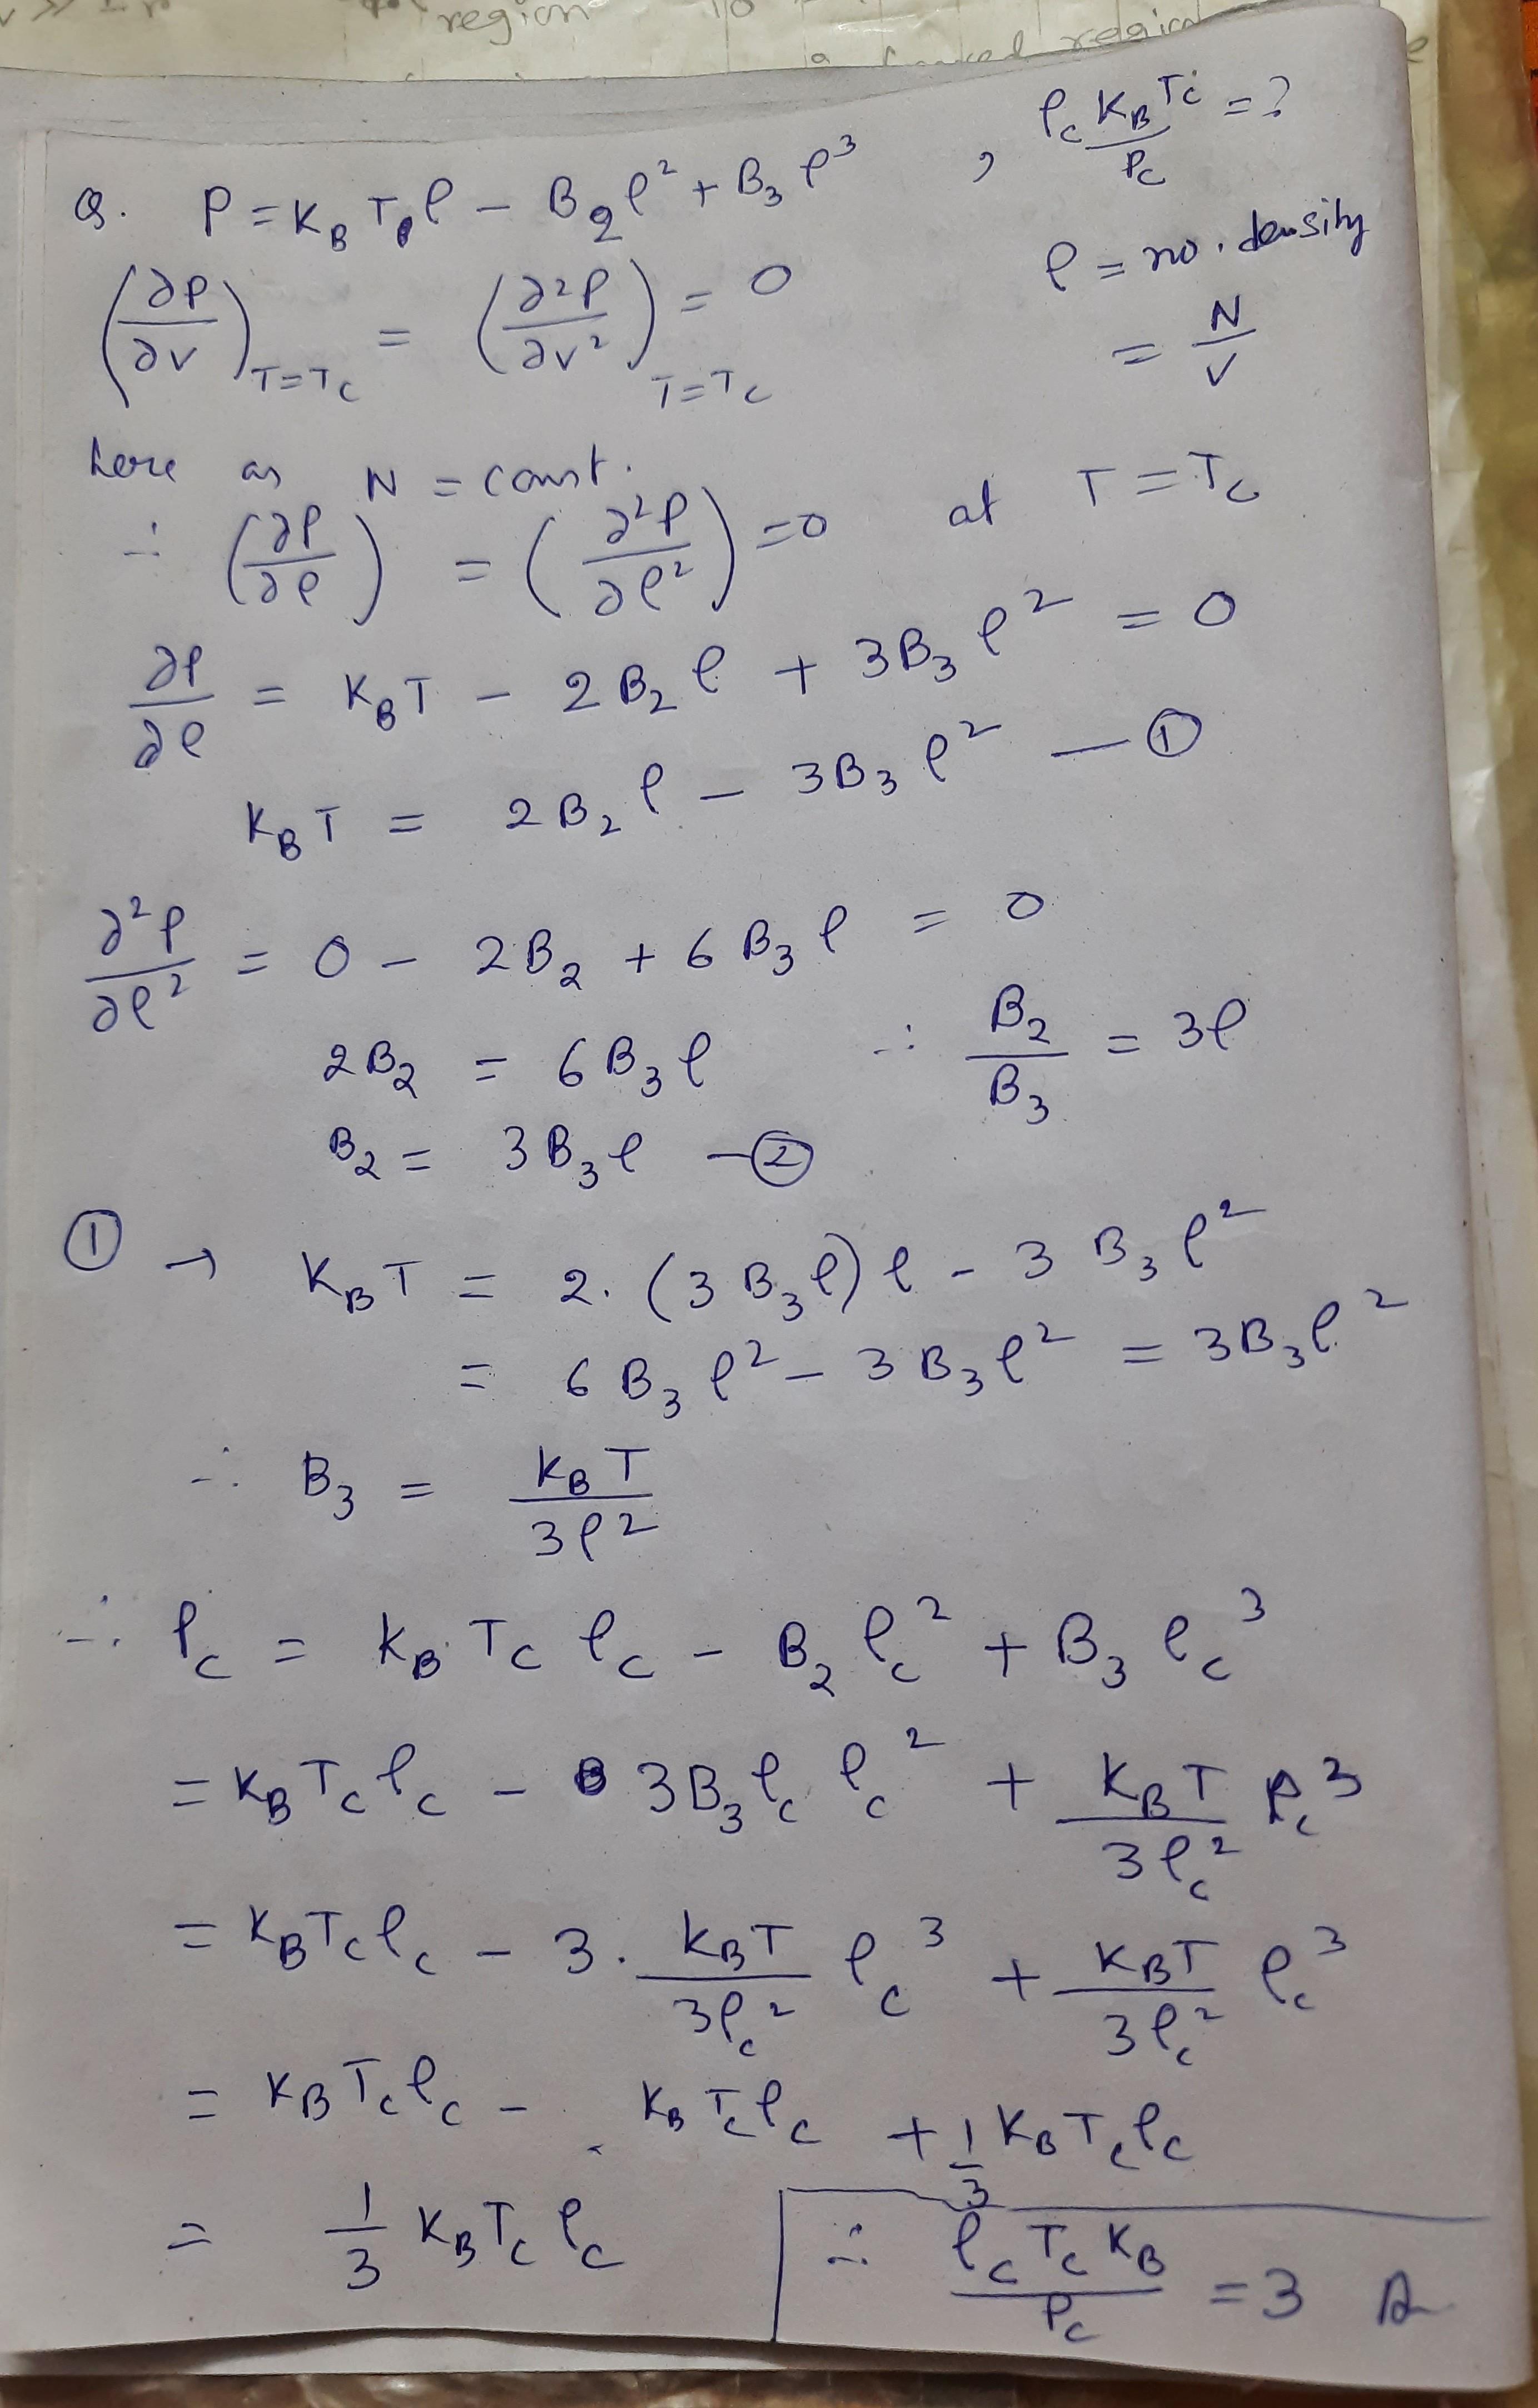 region
Q. P = K_B T ρ - B_2 ρ^2 + B_3 ρ^3 , ρ_c K_B T_c / P_c = ?
ρ = no. density
(∂P/∂V)_{T=T_c} = (∂^2P/∂V^2)_{T=T_c} = 0
= N/V
here as N = const.
∴ (∂P/∂ρ) = (∂^2P/∂ρ^2) = 0 at T = T_c
∂P/∂ρ = K_B T - 2 B_2 ρ + 3 B_3 ρ^2 = 0
K_B T = 2 B_2 ρ - 3 B_3 ρ^2 — ①
∂^2P/∂ρ^2 = 0 - 2 B_2 + 6 B_3 ρ = 0
2 B_2 = 6 B_3 ρ ∴ B_2/B_3 = 3ρ
B_2 = 3 B_3 ρ — ②
① → K_B T = 2. (3 B_3 ρ) ρ - 3 B_3 ρ^2
= 6 B_3 ρ^2 - 3 B_3 ρ^2 = 3 B_3 ρ^2
∴ B_3 = K_B T / 3ρ^2
∴ P_c = K_B T_c ρ_c - B_2 ρ_c^2 + B_3 ρ_c^3
= K_B T_c ρ_c - 3 B_3 ρ_c ρ_c^2 + K_B T / 3ρ_c^2 ρ_c^3
= K_B T_c ρ_c - 3. K_B T / 3ρ_c^2 ρ_c^3 + K_B T / 3ρ_c^2 ρ_c^3
= K_B T_c ρ_c - K_B T_c ρ_c + 1/3 K_B T_c ρ_c
= 1/3 K_B T_c ρ_c ∴ ρ_c T_c K_B / P_c = 3